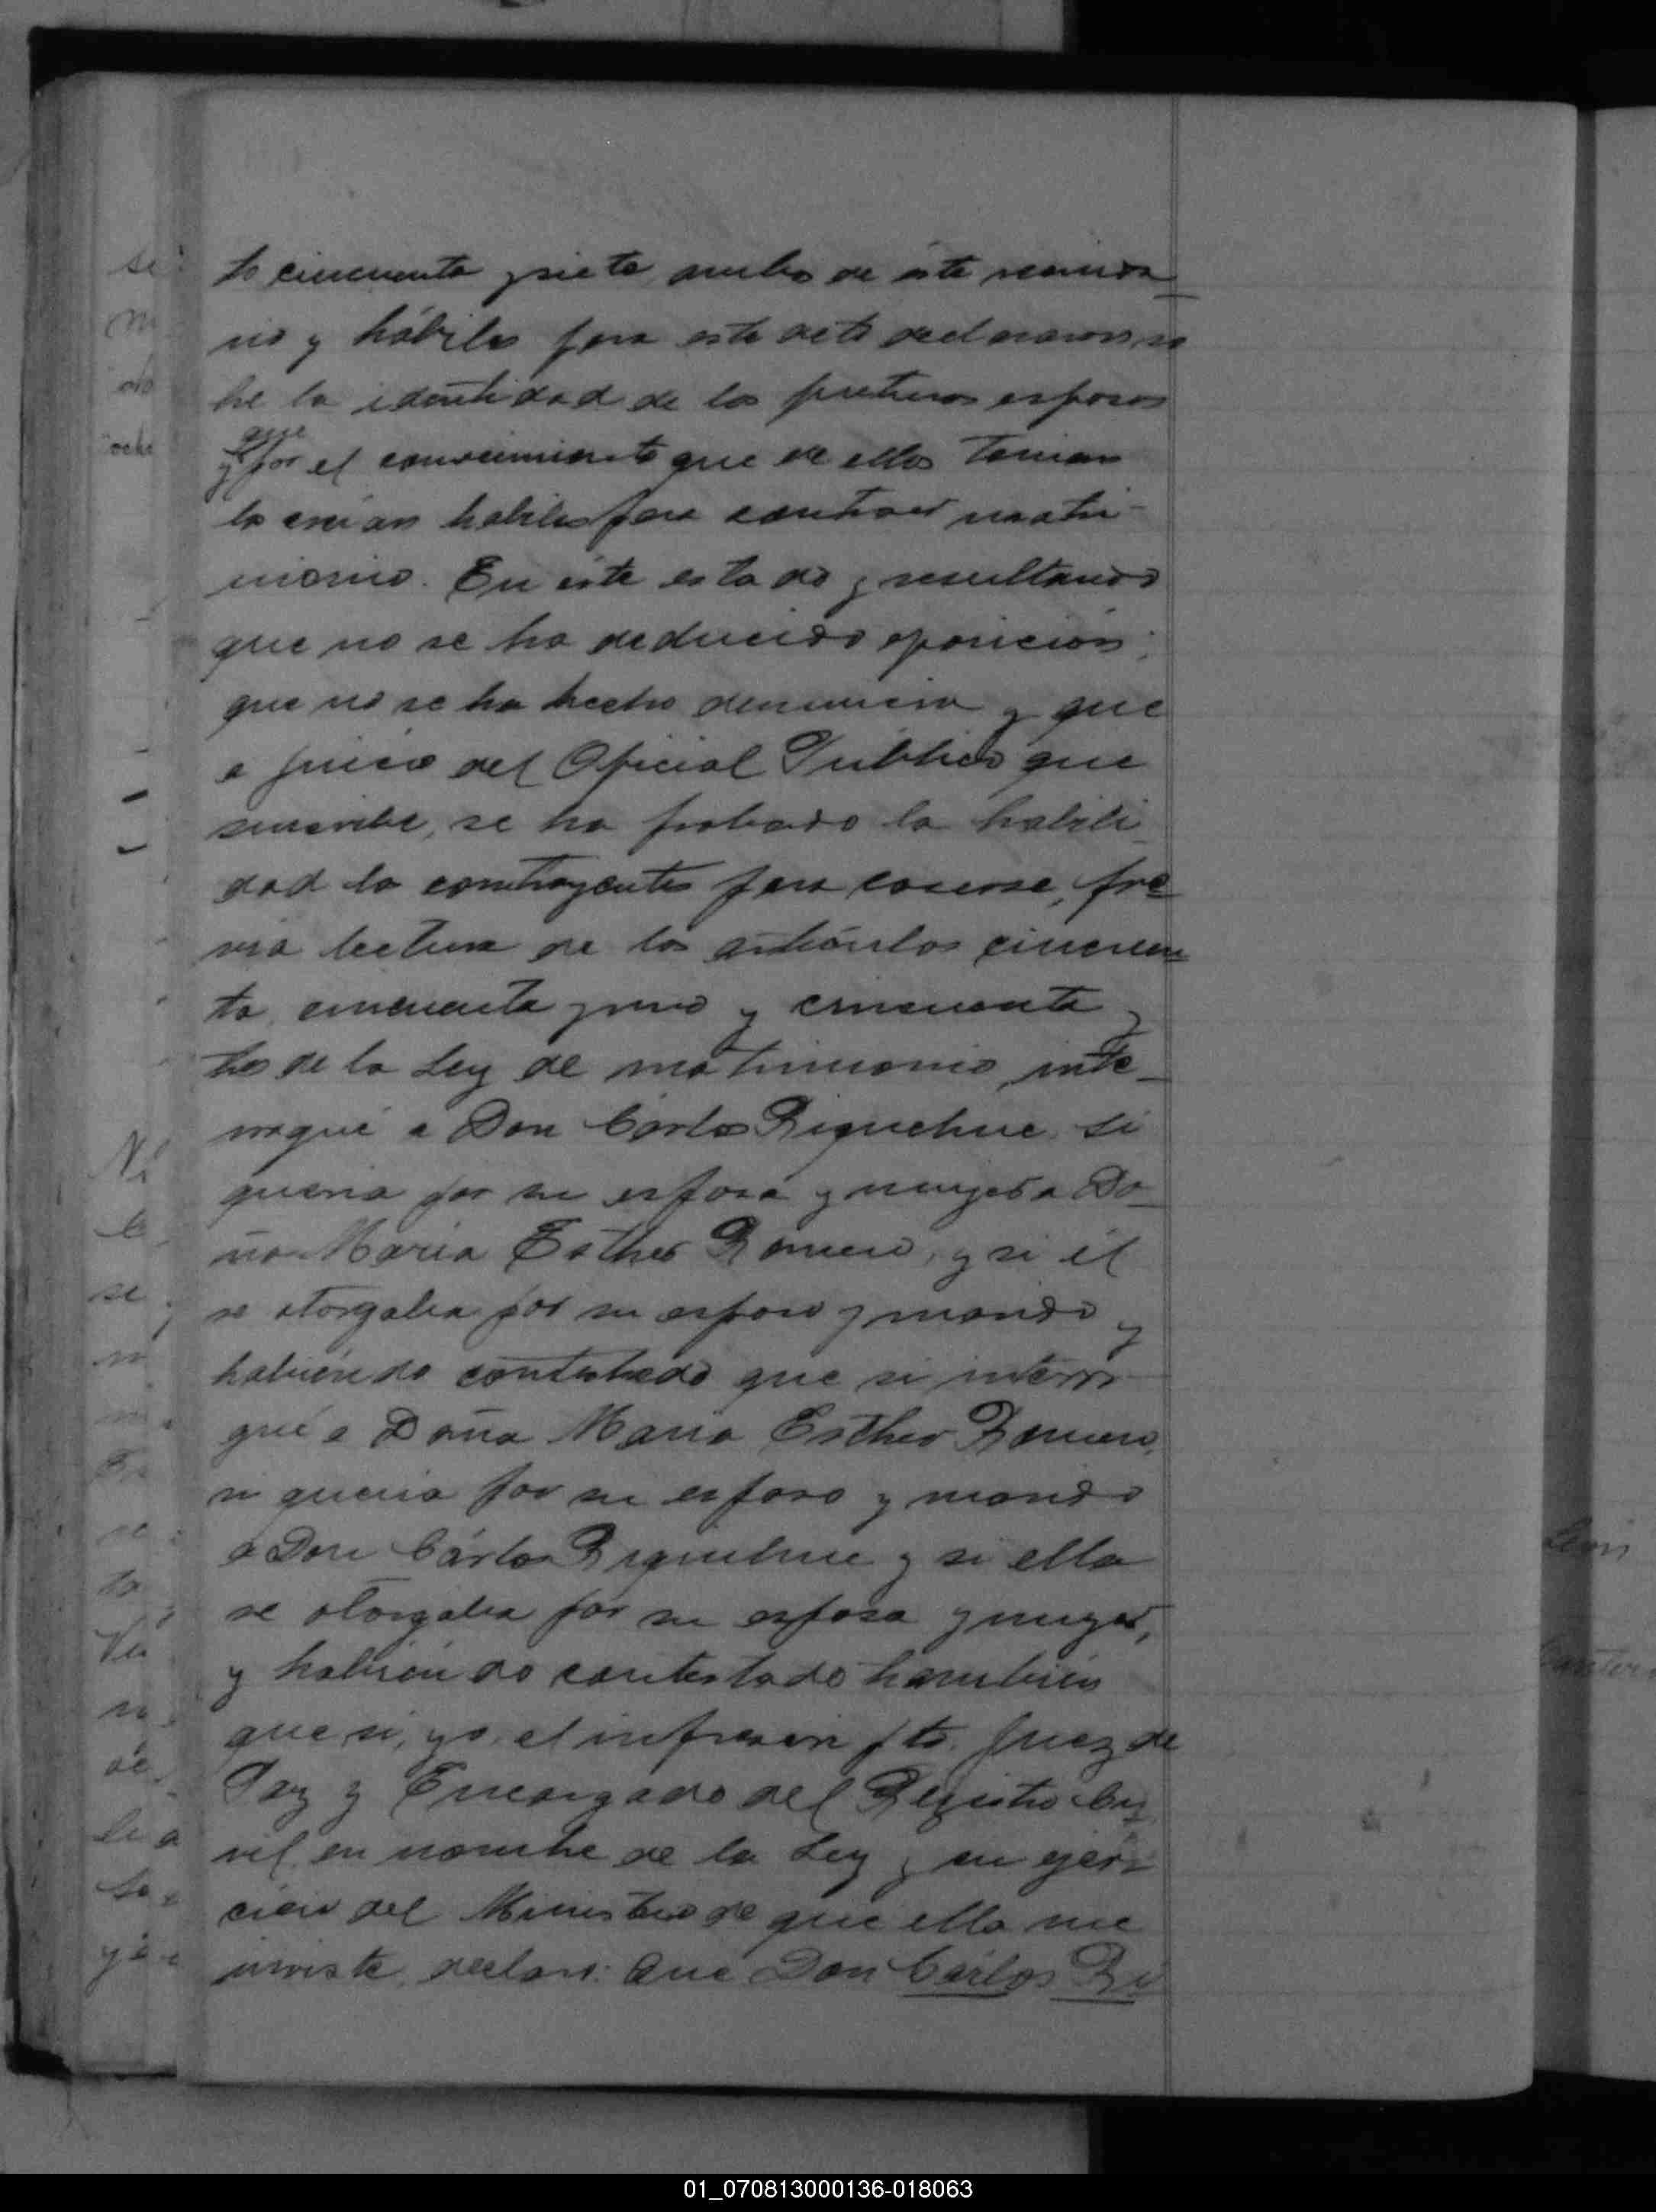 to cincuenta y siete, ambos de éste vecinda
rio y hábiles para este acto declararon so
bre la identidad de los futuros esposos
que
y por el conocimiento que de ellos tenian
los creian habiles para contraer matri-
monio. En éste estado y resultando
que no se ha deducido oposicion;
que no se ha hecho denuncia y que
a juicio del Oficial Público que
suscribe, se ha probado la habili
dad los contrayentes para casarse, pre
via lectura de los artículos cincuen
ta, cincuenta y uno y cincuenta y
tres de la Ley de matrimonio, inte-
rrogué a Don Cárlos Riquelme, si
queria por su esposa y muger a Do-
ña María Esther Romero, y si él
se otorgaba por su esposo y marido y
habiendo contestado que si interro
gué a Doña María Esther Romero,
si queria por su esposo y marido
a Don Cárlos Riquelme y si ella
se otorgaba por su esposa y muger,
y habiendo contestado tambien
que si, yo, el infrascripto, Juez de
Paz y Encargado del Registro Ci
vil, en nombre de la Ley y en ejer
cicio del Ministerio de que ella me
inviste, declaro: Que Don Cárlos Ri
01_070813000136-018063